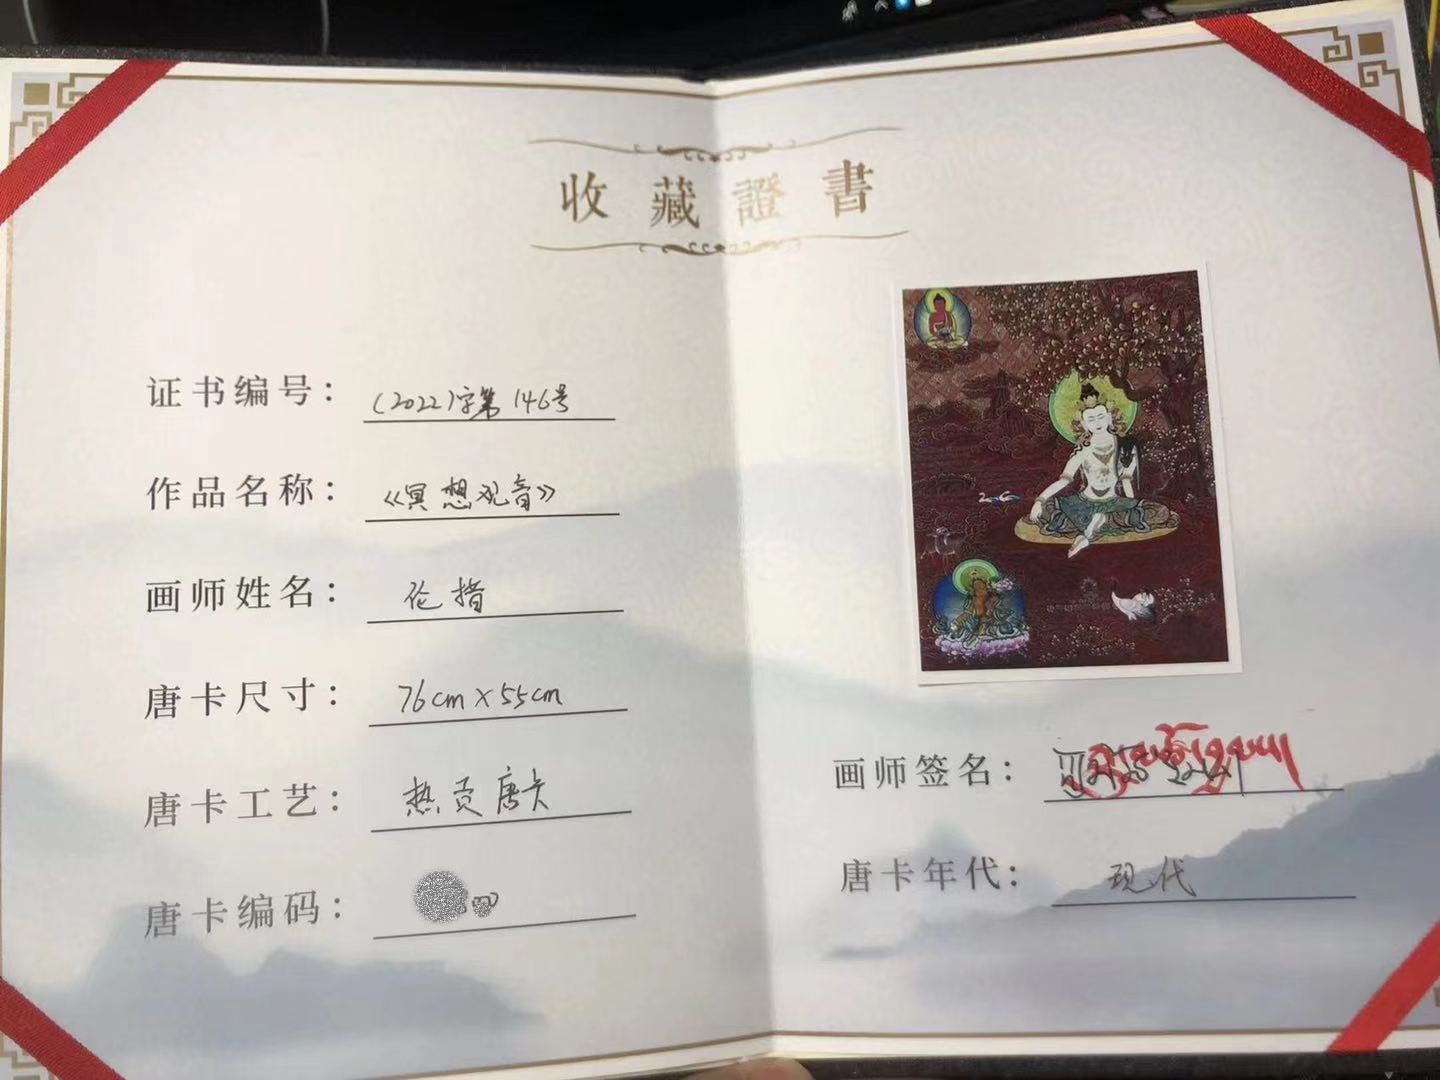 收藏證書
证书编号：(2022)字第146号
作品名称：《冥想观音》
画师姓名：伦措
唐卡尺寸：76cm×55cm
唐卡工艺：热贡唐卡
唐卡编码：
画师签名：
唐卡年代：现代